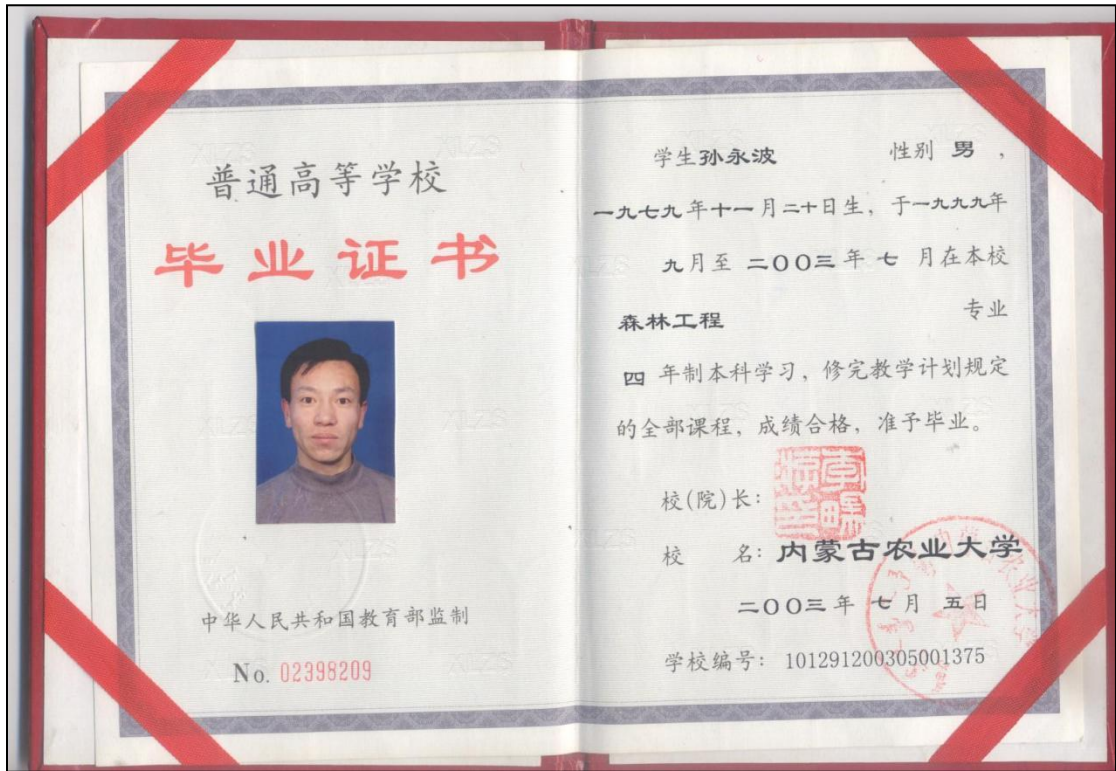 普通高等学校
毕业证书
中华人民共和国教育部监制
No. 02398209
学生孙永波 性别 男，
一九七九年十一月二十日生，于一九九九年
九月至 二〇〇三 年 七 月在本校
森林工程 专业
四 年制本科学习，修完教学计划规定
的全部课程，成绩合格，准予毕业。
校(院)长：
校 名：内蒙古农业大学
二〇〇三 年 七 月 五 日
学校编号： 101291200305001375
XLZS
内蒙古农业大学